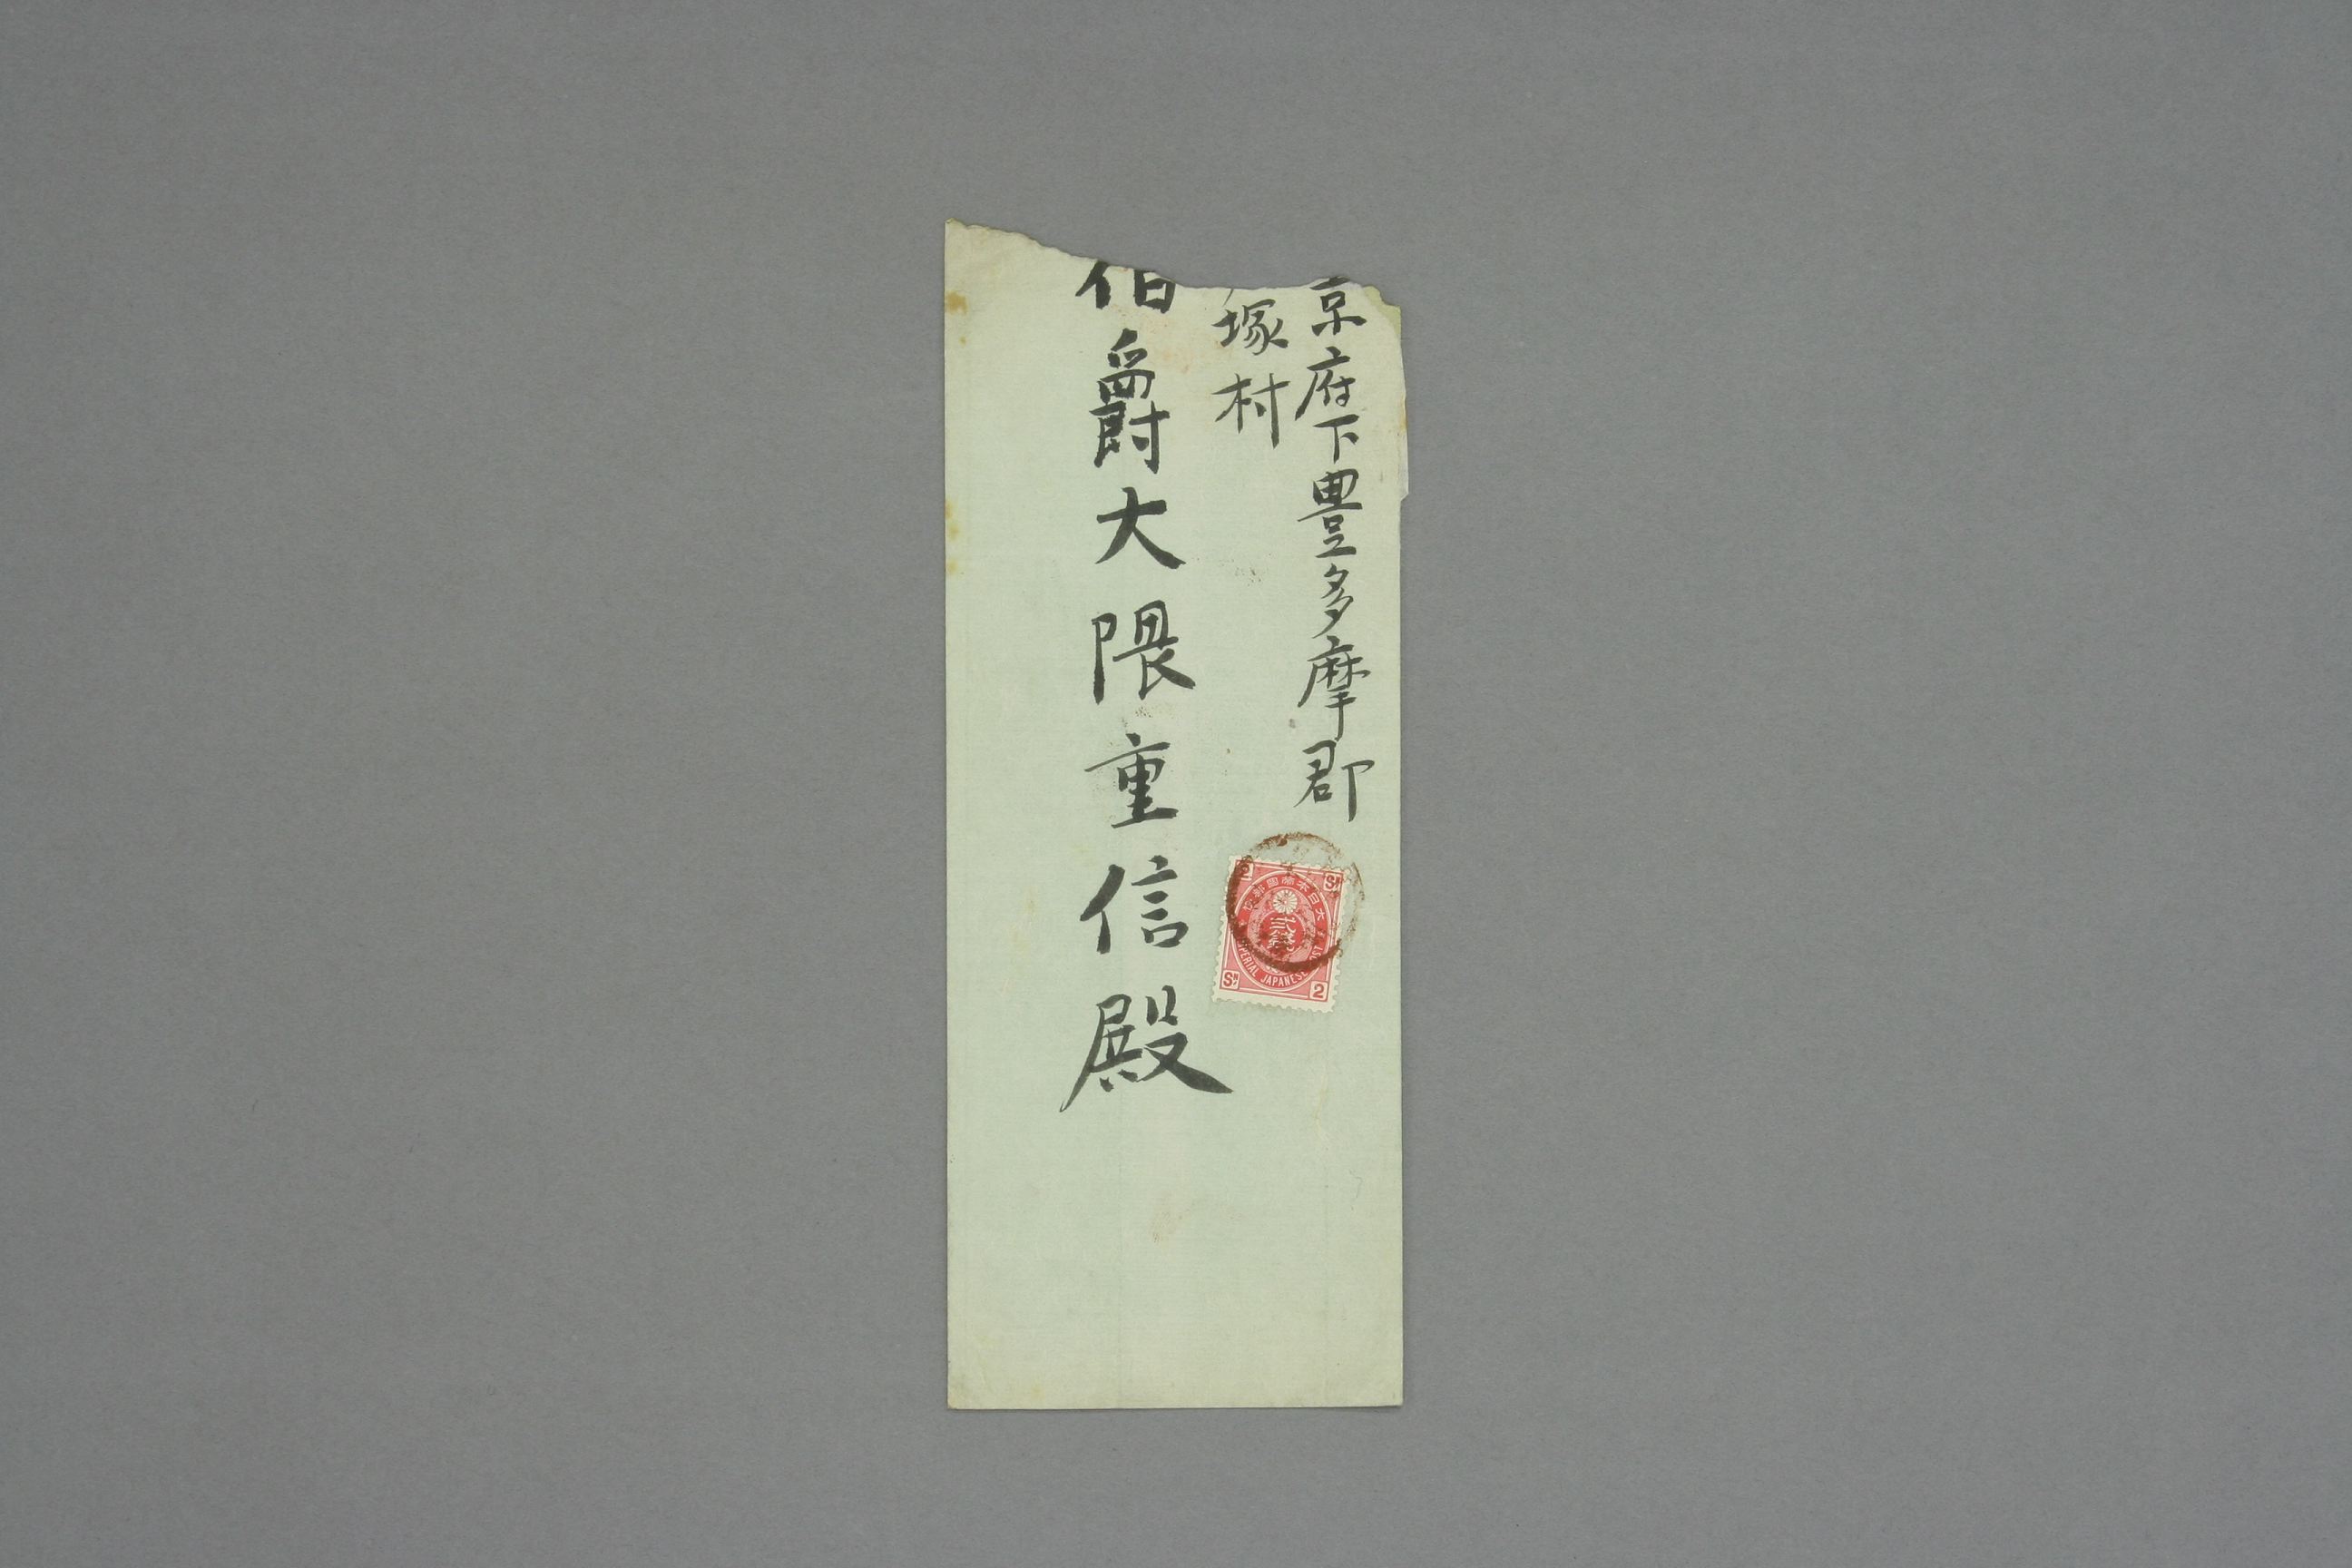 京府下豊多摩郡
塚村
伯爵大隈重信殿
2 SN
大日本帝国郵便
貳銭
IMPERIAL JAPANESE POST
SN 2